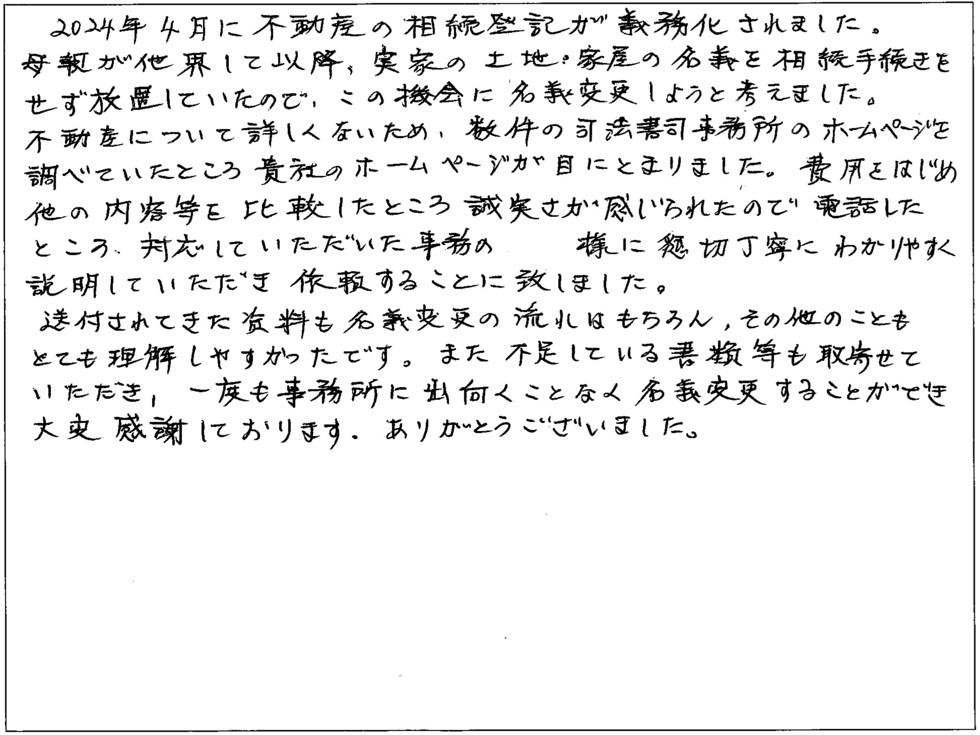 2024年4月に不動産の相続登記が義務化されました。
母親が他界して以降、実家の土地・家屋の名義を相続手続きを
せず放置していたので、この機会に名義変更しようと考えました。
不動産について詳しくないため、数件の司法書司事務所のホームページを
調べていたところ貴社のホームページが目にとまりました。費用をはじめ
他の内容等を比較したところ誠実さが感じられたので電話した
ところ、対応していただいた事務の 様に懇切丁寧にわかりやすく
説明していただき依頼することに致しました。
送付されてきた資料も名義変更の流れはもちろん、その他のことも
とても理解しやすかったです。また不足している書類等も取寄せて
いただき、一度も事務所に出向くことなく名義変更することができ
大変感謝しております。ありがとうございました。